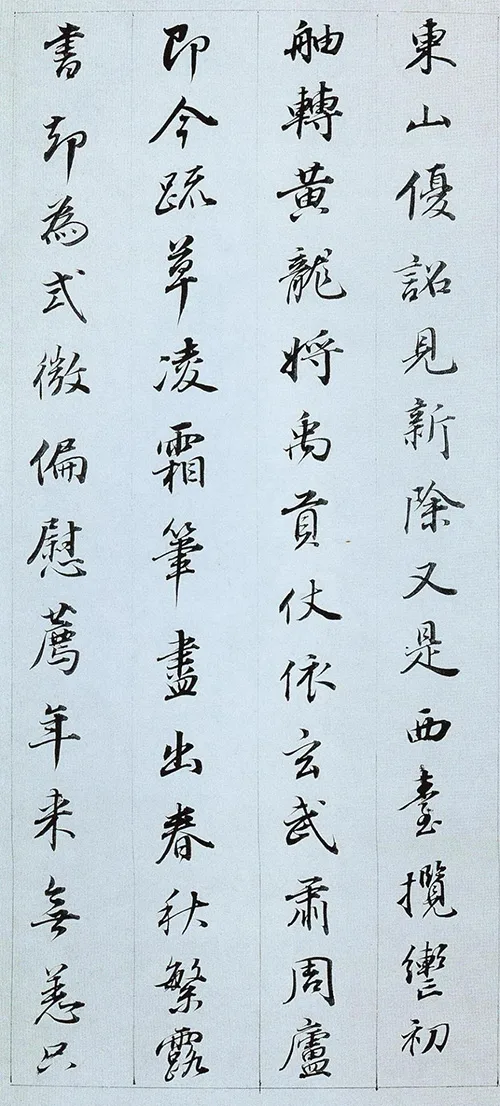 東山優詔見新除又是西臺攬轡初
舳轉黃龍將禹貢仗依玄武肅周廬
即今疏草凌霜筆盡出春秋繁露
書却為式微偏慰薦年来無恙只